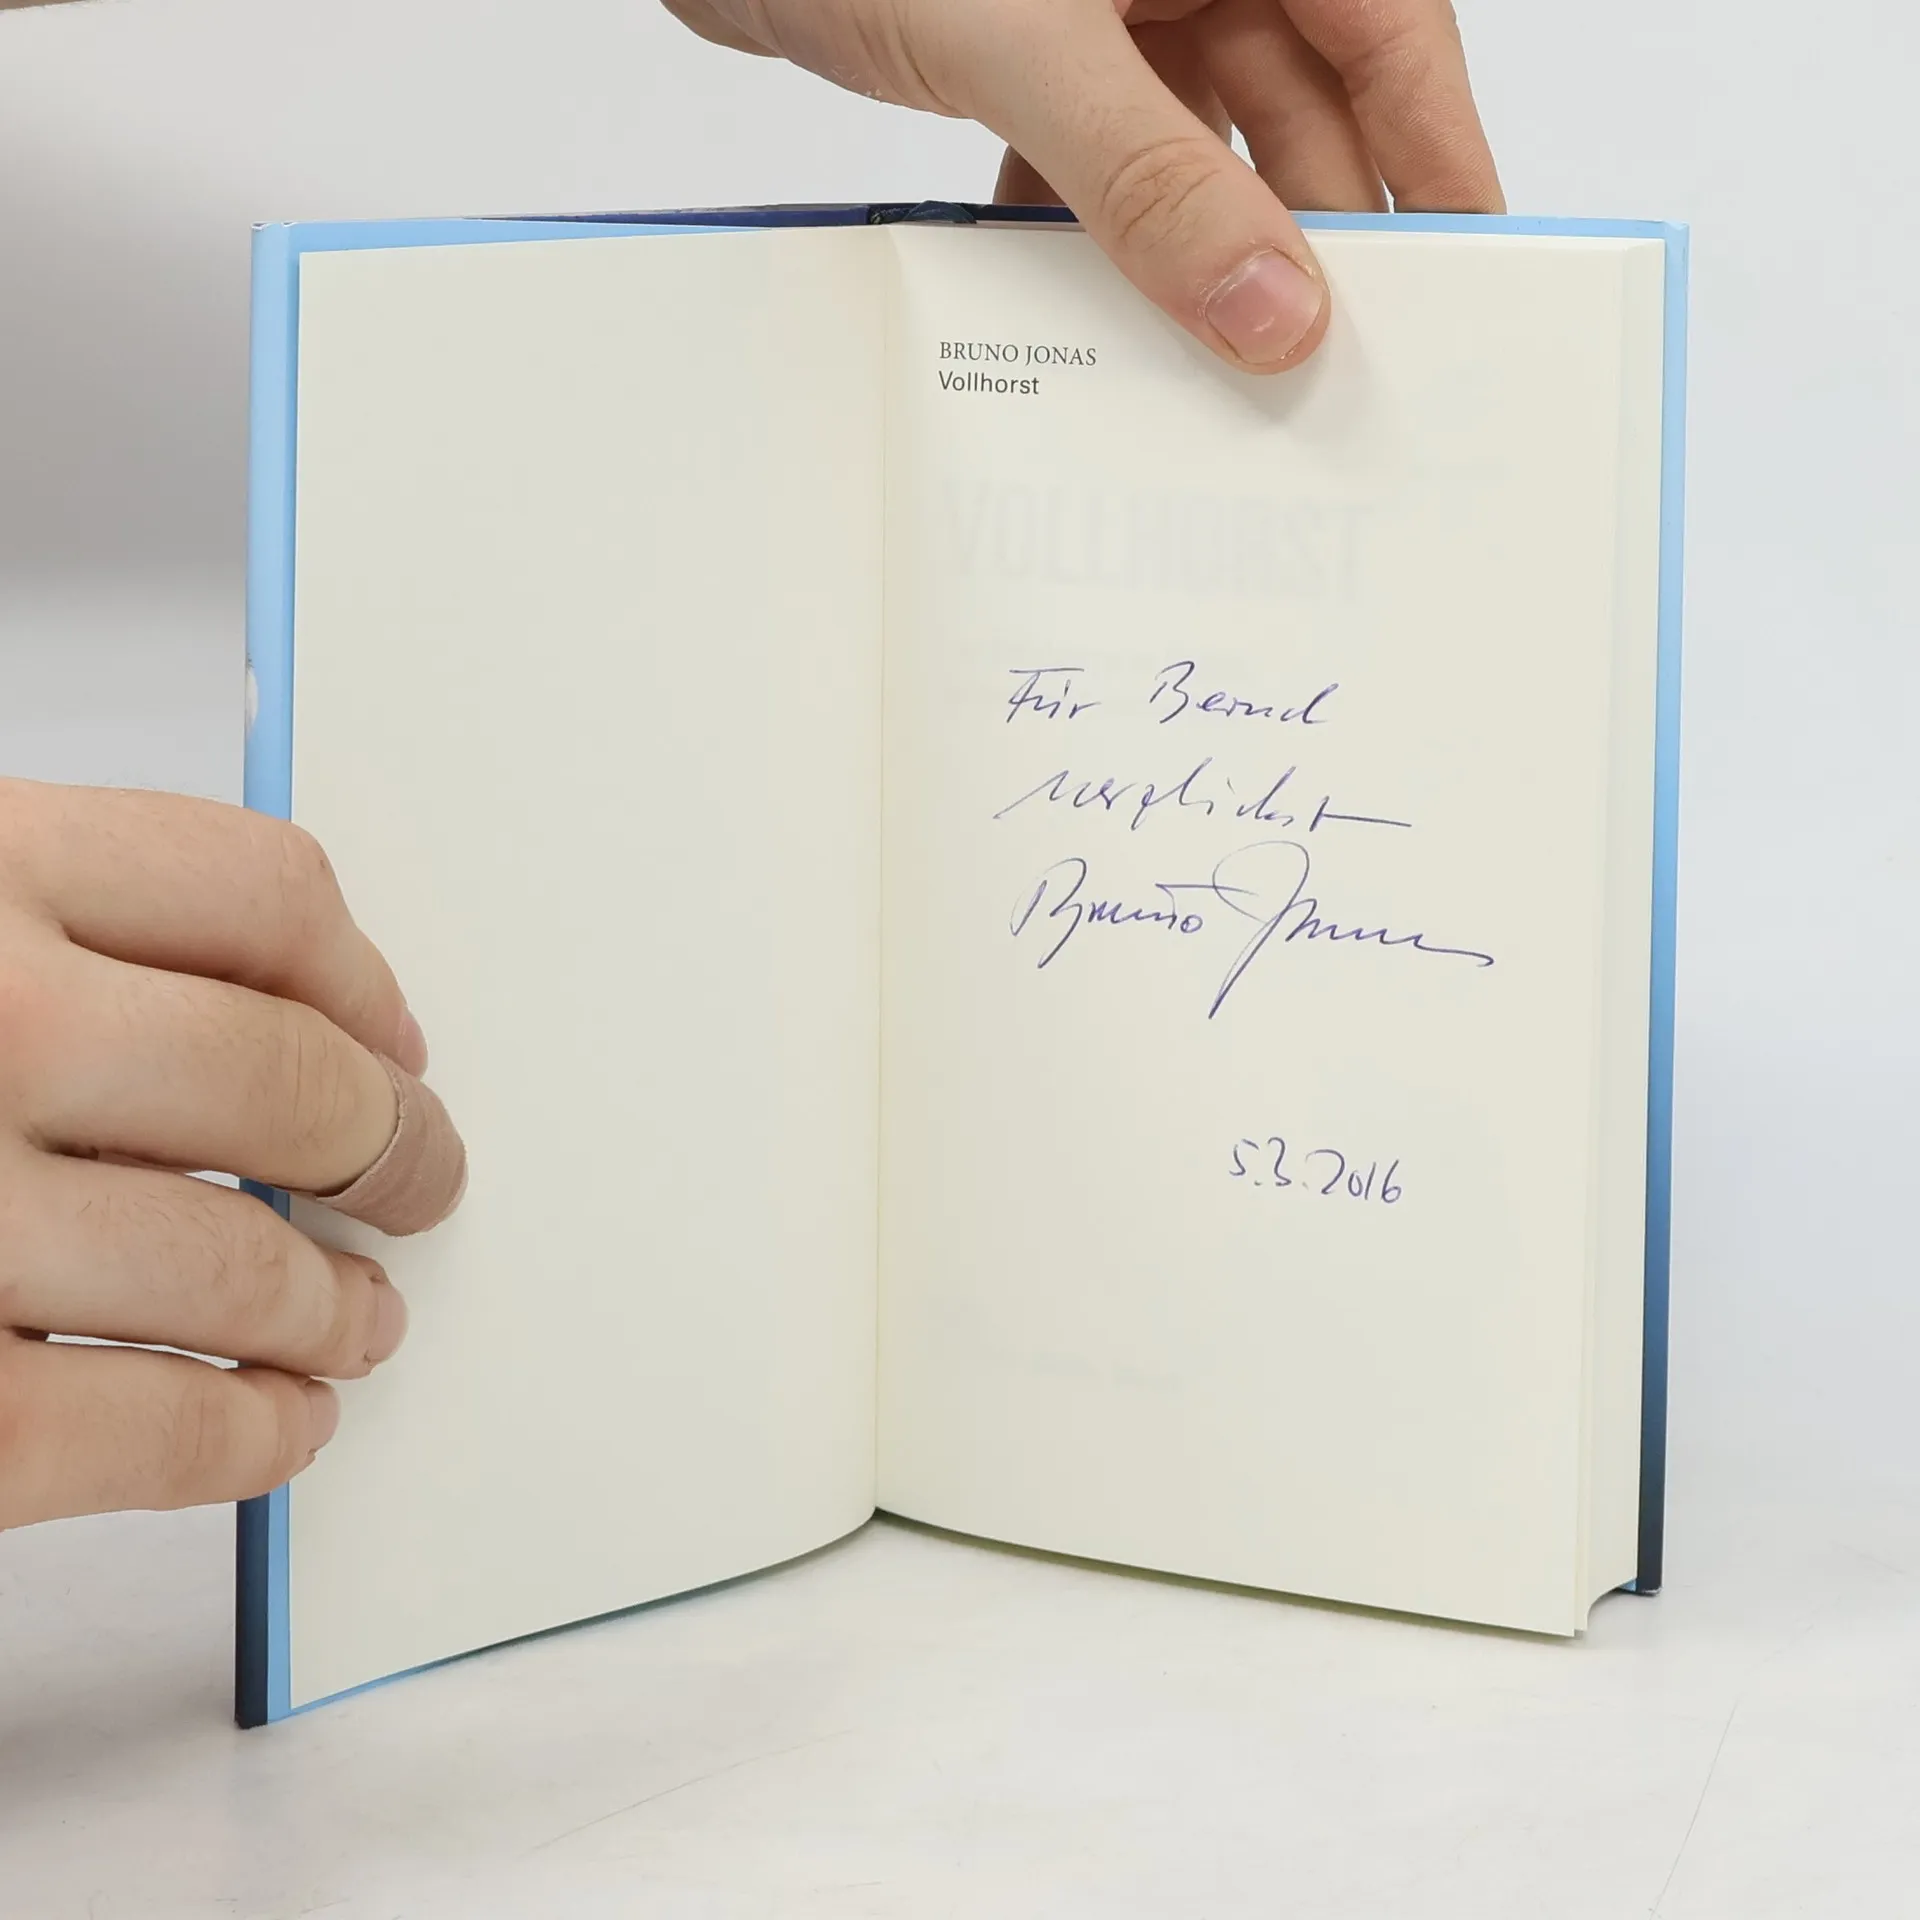 BRUNO JONAS
Vollhorst
VOLLHORST
Für Bernd
herzlichst
Bruno Jonas
5.3.2016